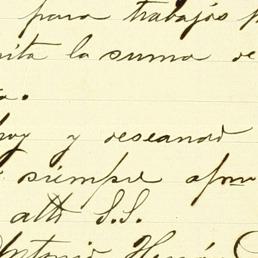 para trabajos
la suma de
y deseando
siempre afmo
atto S.S.
Antonio Hernán